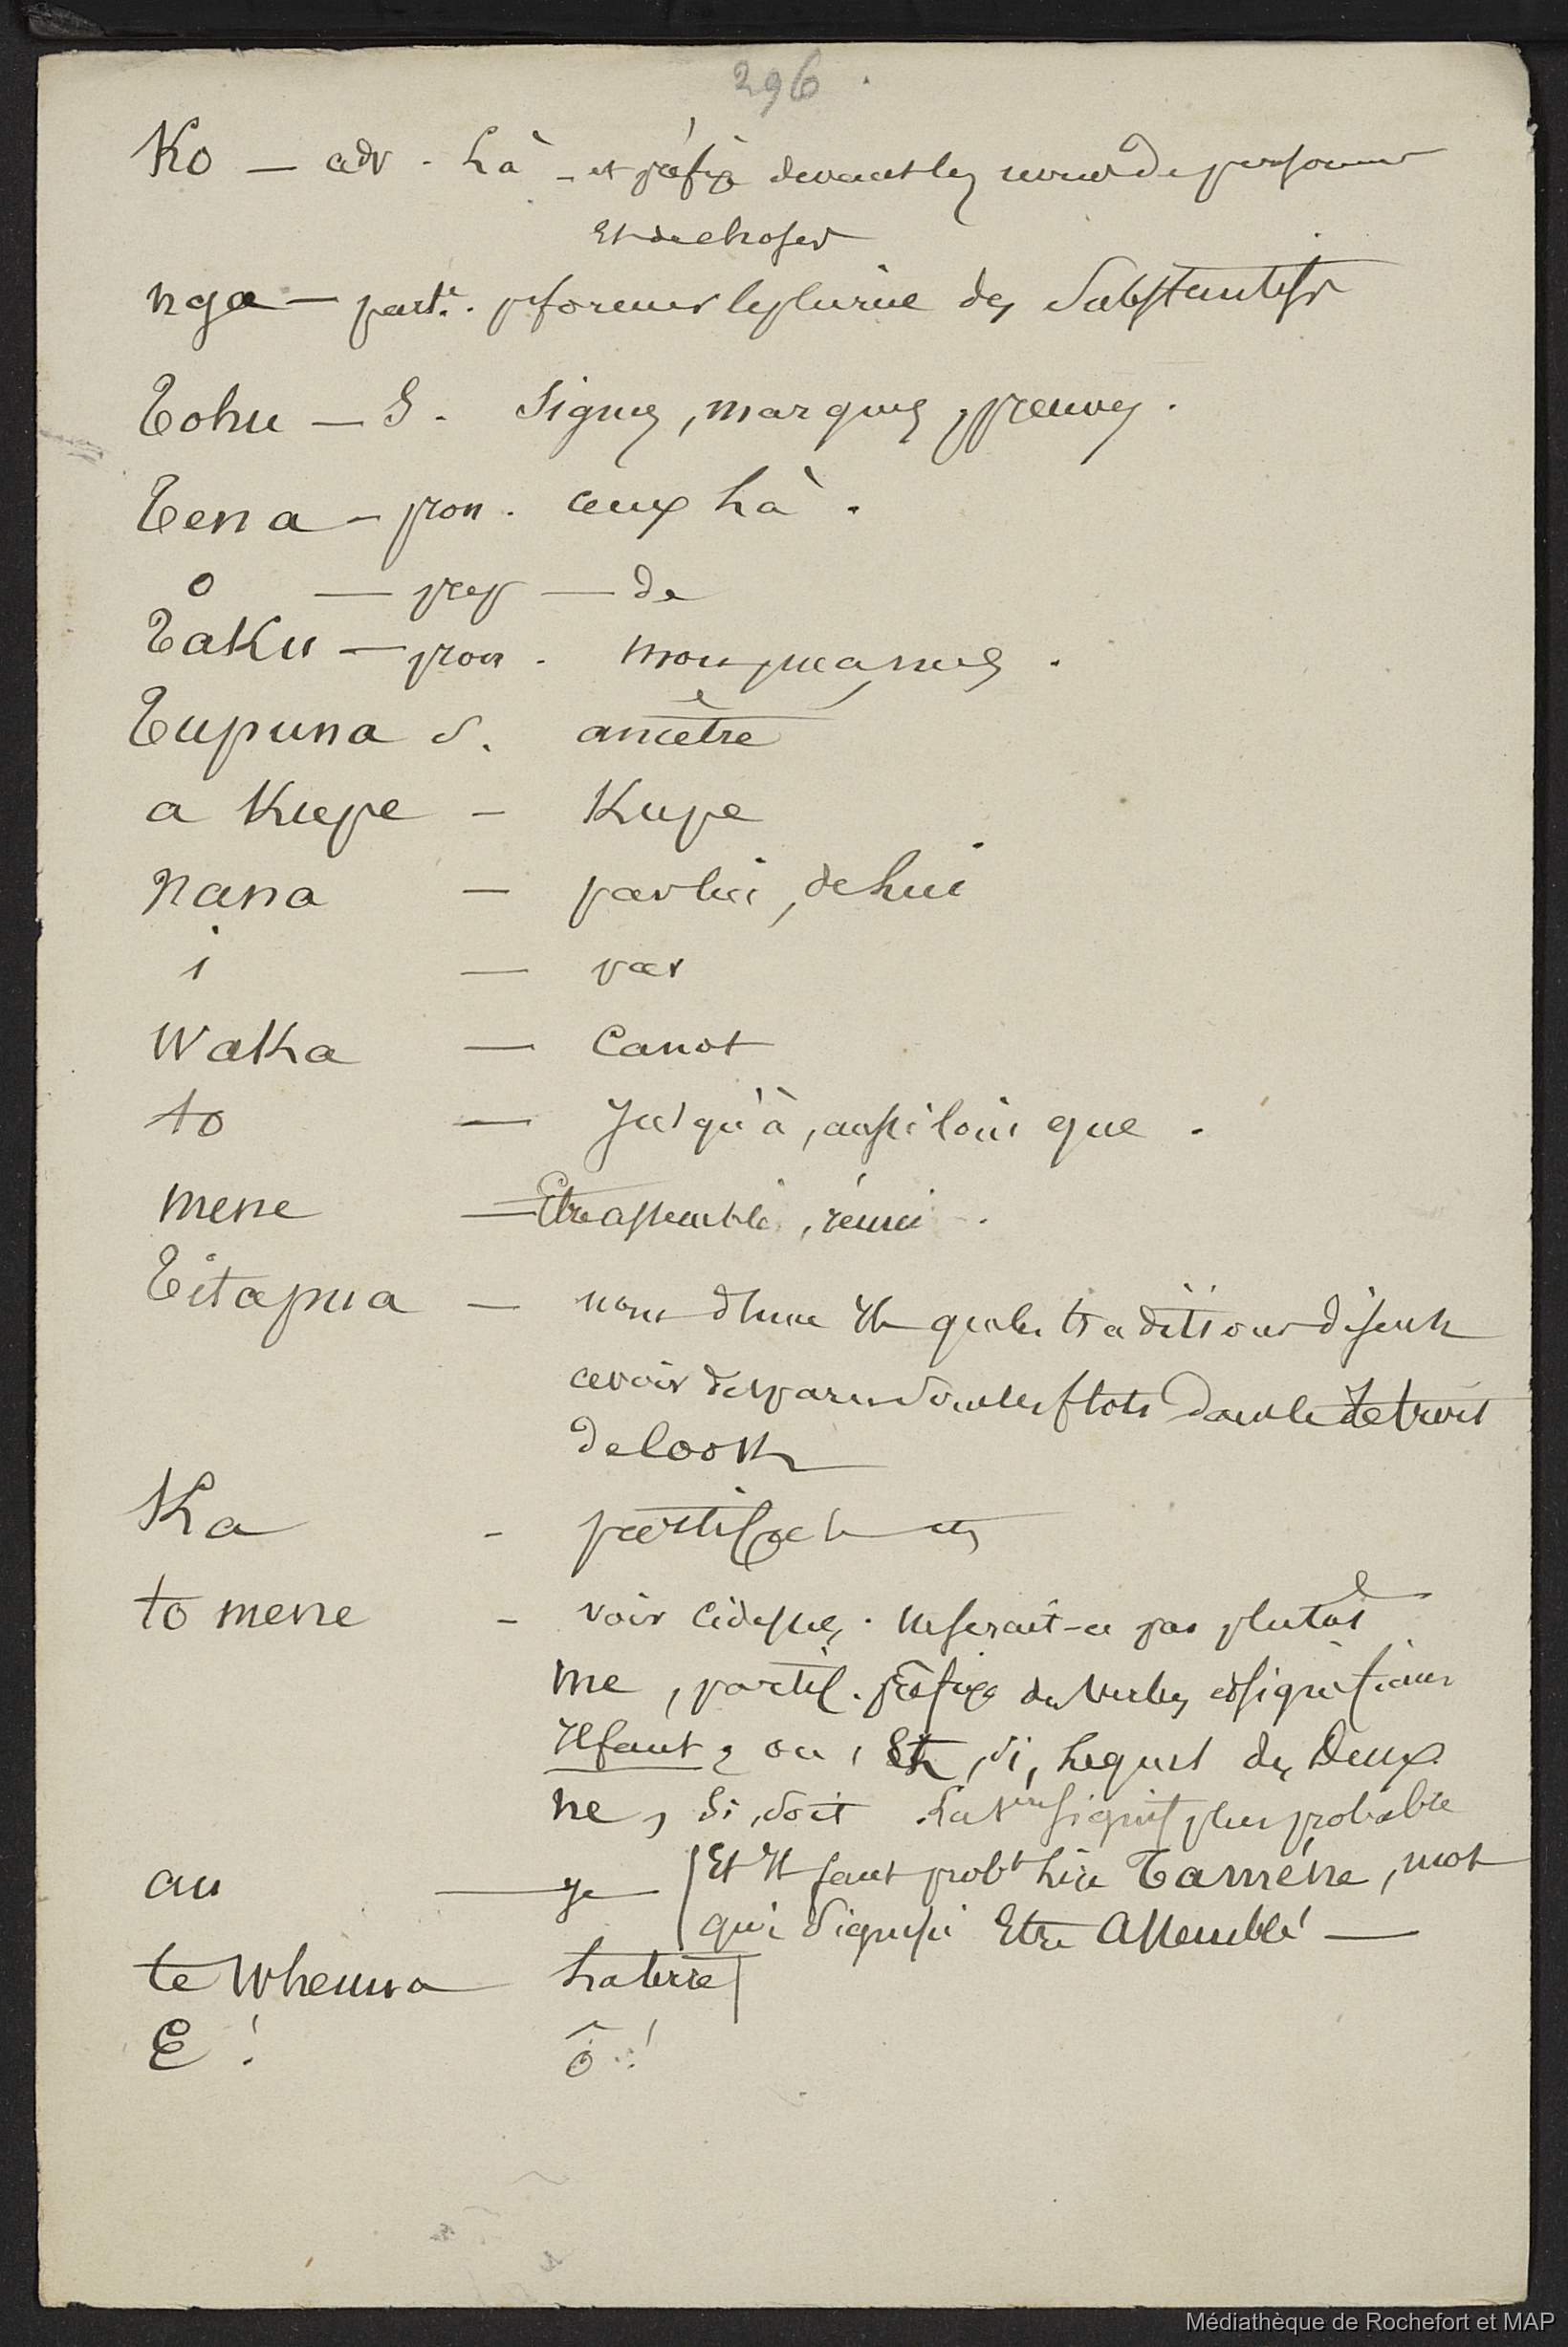 296.
Ko — adv. Là - et préfixe devant les noms de personnes
et de choses
nga — part. pr former le pluriel des Substantifs
Tohu — S. Signes, marques, preuves.
Tena — pron. ceux là.
o — prep — de
Taku — pron. mon, ma, mes.
Tupuna s. ancêtre
a Kupe — Kupe
nana — par lui, de lui
i — par
Waka — Canot
to — Jusqu'à, aussi loin que.
mene — Etre assemblé, réuni.
Titapua — nom d'une Ile que les traditions disent
avoir disparu sous les flots dans le Détroit
de Cook
Ka — particule
to mene — voir ci dessus. Ne serait-ce pas plutôt
me, partic. préfixe des Verbes et signifiant
Il faut, ou, Et, si, Lequel des Deux
ne, Si, soit. La 1ere signif plus probable
au — je Et Il faut probt lire Tamene, mot
qui signifie Etre Assemblé —
te Whenua La terre
E! ô!
Médiathèque de Rochefort et MAP